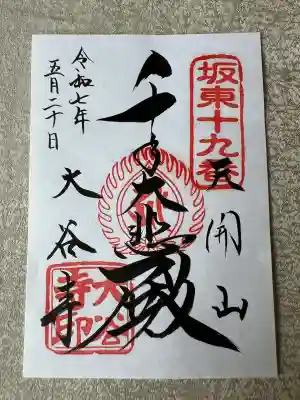 坂東十九番
天開山
千手大悲殿
大谷寺
大谷寺印
令和七年
五月二十日